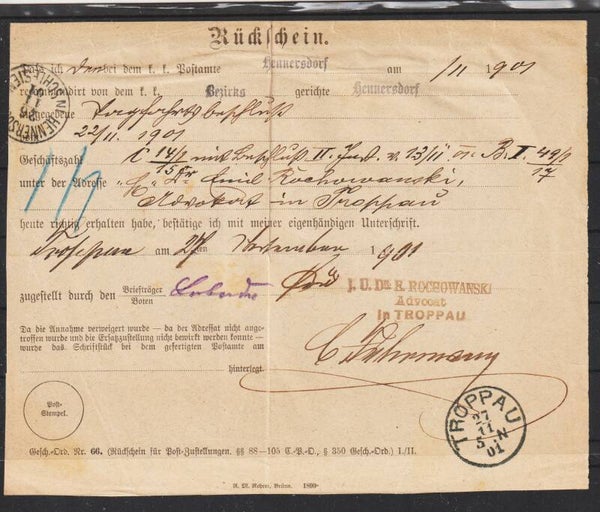 Rückschein.
Daß ich den bei dem k. k. Postamte Hennersdorf am /11 1901
rekommandirt von dem k. k. Bezirks gerichte Hennersdorf
aufgegebene Tagfahrtsbeschluß
22/11. 1901
Geschäftszahl C 14/1 mit Beschluß II. v. 13/11 B. I. 49/1
15 17
unter der Adresse Dr Emil Rochowanski,
Advokat in Troppau
heute richtig erhalten habe, bestätige ich mit meiner eigenhändigen Unterschrift.
Troppau am 27 November 1901
zugestellt durch den Briefträger
Boten
J. U. DR. E. ROCHOWANSKI
Advocat
in TROPPAU
Da die Annahme verweigert wurde — da der Adressat nicht ange-
troffen wurde und die Ersatzzustellung nicht bewirkt werden konnte —
wurde das Schriftstück bei dem gefertigten Postamte am
hinterlegt.
Post-
Stempel.
TROPPAU
27
11
5 N
01
Gesch.-Ord. Nr. 66. (Rückschein für Post-Zustellungen. §§ 88—105 C.-P.-O., § 350 Gesch.-Ord.) I./II.
R. M. Rohrer, Brünn. 1899